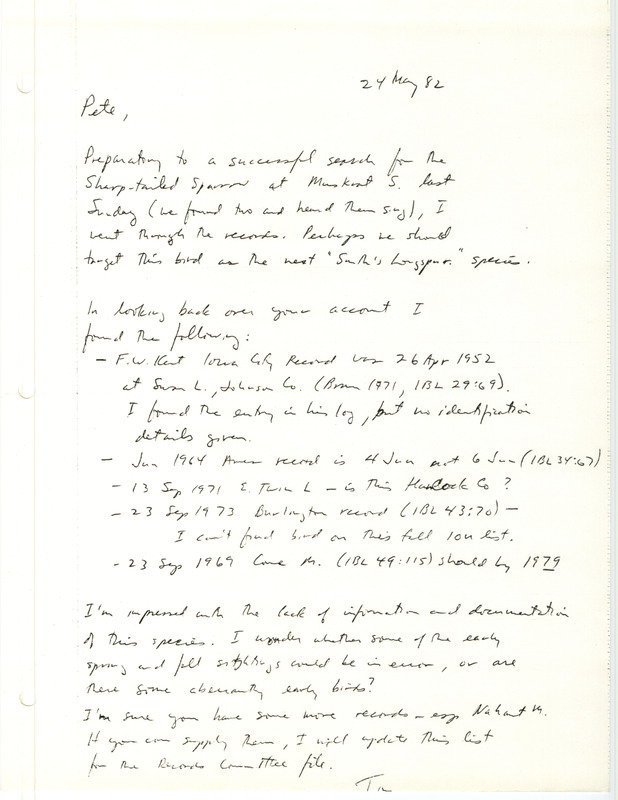 24 May 82
Pete,
Preparatory to a successful search for the
Sharp-tailed Sparrow at Muskrat S. last
Sunday (we found two and heard them sing), I
went through the records. Perhaps we should
target this bird as the next "Smith's Longspur" species.
In looking back over your account I
found the following:
- F.W. Kent Iowa City record was 26 Apr 1952
at Swan L., Johnson Co. (Brown 1971, IBL 29:69).
I found the entry in his log, but no identification
details given.
- Jun 1964 Ames record is 4 Jun not 6 Jun (IBL 34:67)
- 13 Sep 1971 E. Twin L - is this Hancock Co?
- 23 Sep 1973 Burlington record (IBL 43:70) -
I can't find bird on this fall IOU list.
- 23 Sep 1969 Cone M. (IBL 49:115) should by 1979
I'm impressed with the lack of information and documentation
of this species. I wonder whether some of the early
spring and fall sightings could be in error, or are
there some aberrantly early birds?
I'm sure you have some more records - esp Nahant M.
If you can supply them, I will update this list
for the Records Committee file.
Tim